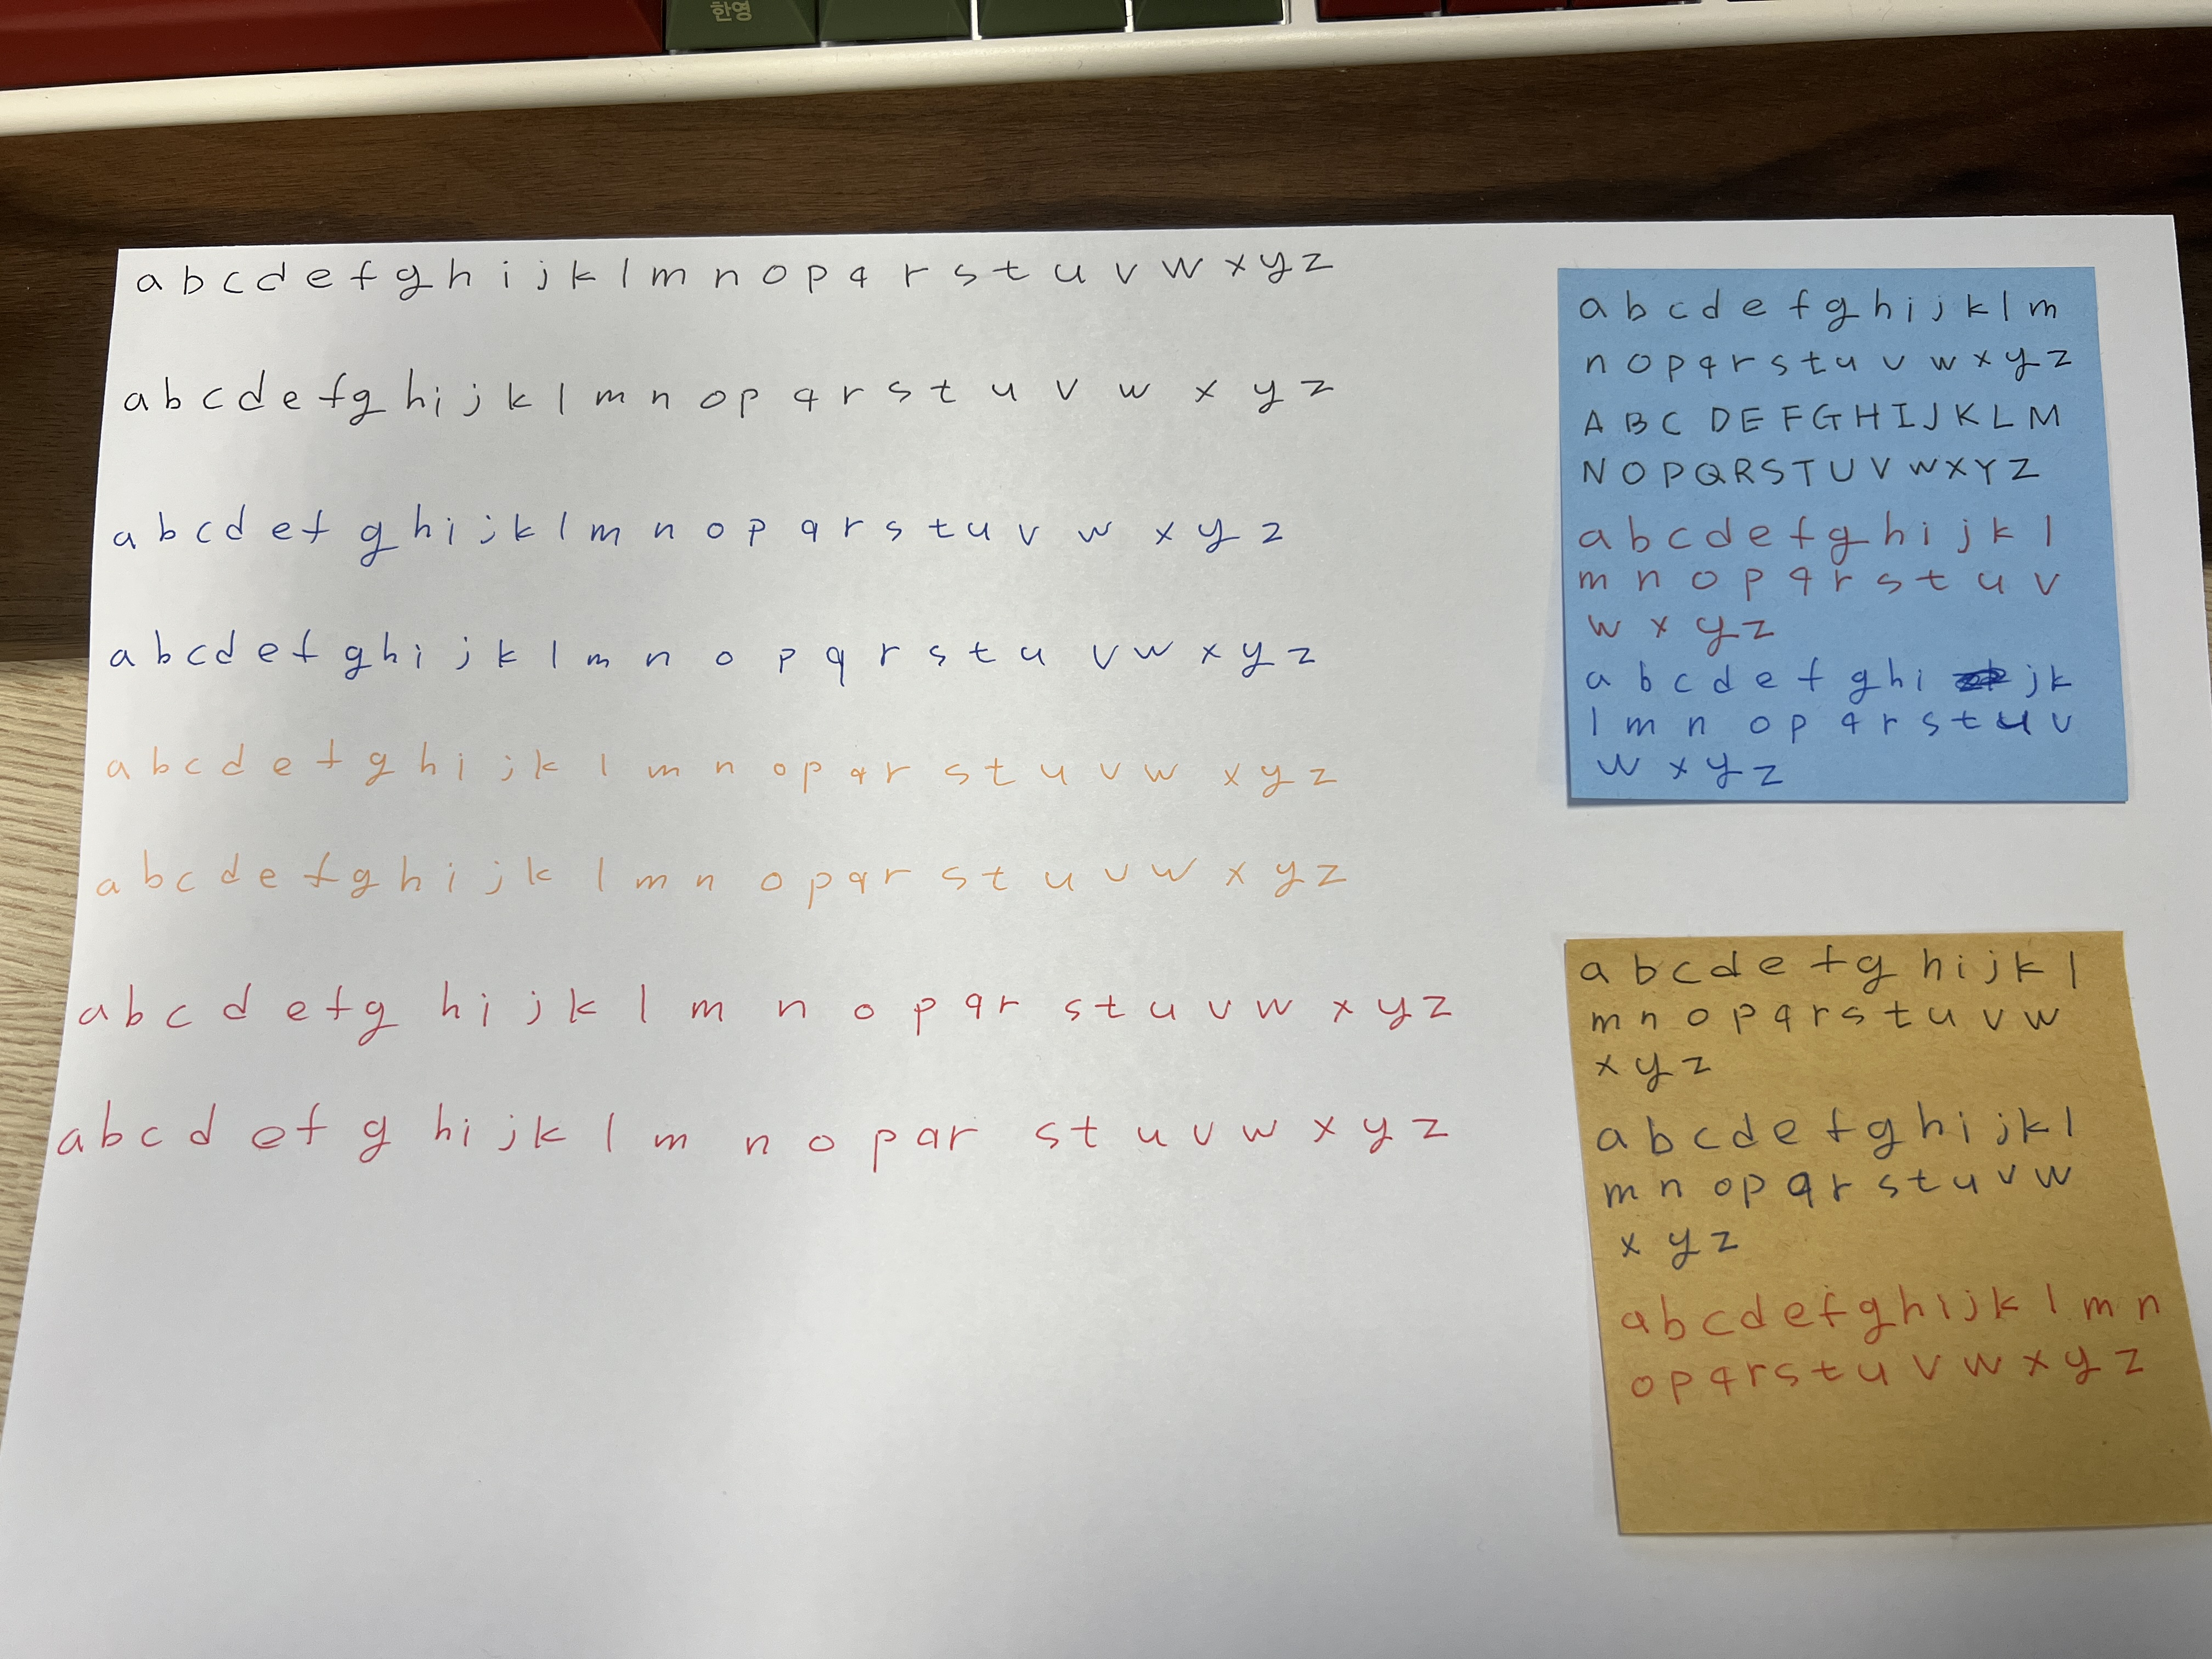 한영
a b c d e f g h i j k l m n o p q r s t u v w x y z
a b c d e f g h i j k l m n o p q r s t u v w x y z
a b c d e f g h i j k l m n o p q r s t u v w x y z
a b c d e f g h i j k l m n o p q r s t u v w x y z
a b c d e f g h i j k l m n o p q r s t u v w x y z
a b c d e f g h i j k l m n o p q r s t u v w x y z
a b c d e f g h i j k l m n o p q r s t u v w x y z
a b c d e f g h i j k l m n o p q r s t u v w x y z
a b c d e f g h i j k l m
n o p q r s t u v w x y z
A B C D E F G H I J K L M
N O P Q R S T U V W X Y Z
a b c d e f g h i j k l
m n o p q r s t u v
w x y z
a b c d e f g h i j k
l m n o p q r s t u v
w x y z
a b c d e f g h i j k l
m n o p q r s t u v w
x y z
a b c d e f g h i j k l
m n o p q r s t u v w
x y z
a b c d e f g h i j k l m n
o p q r s t u v w x y z